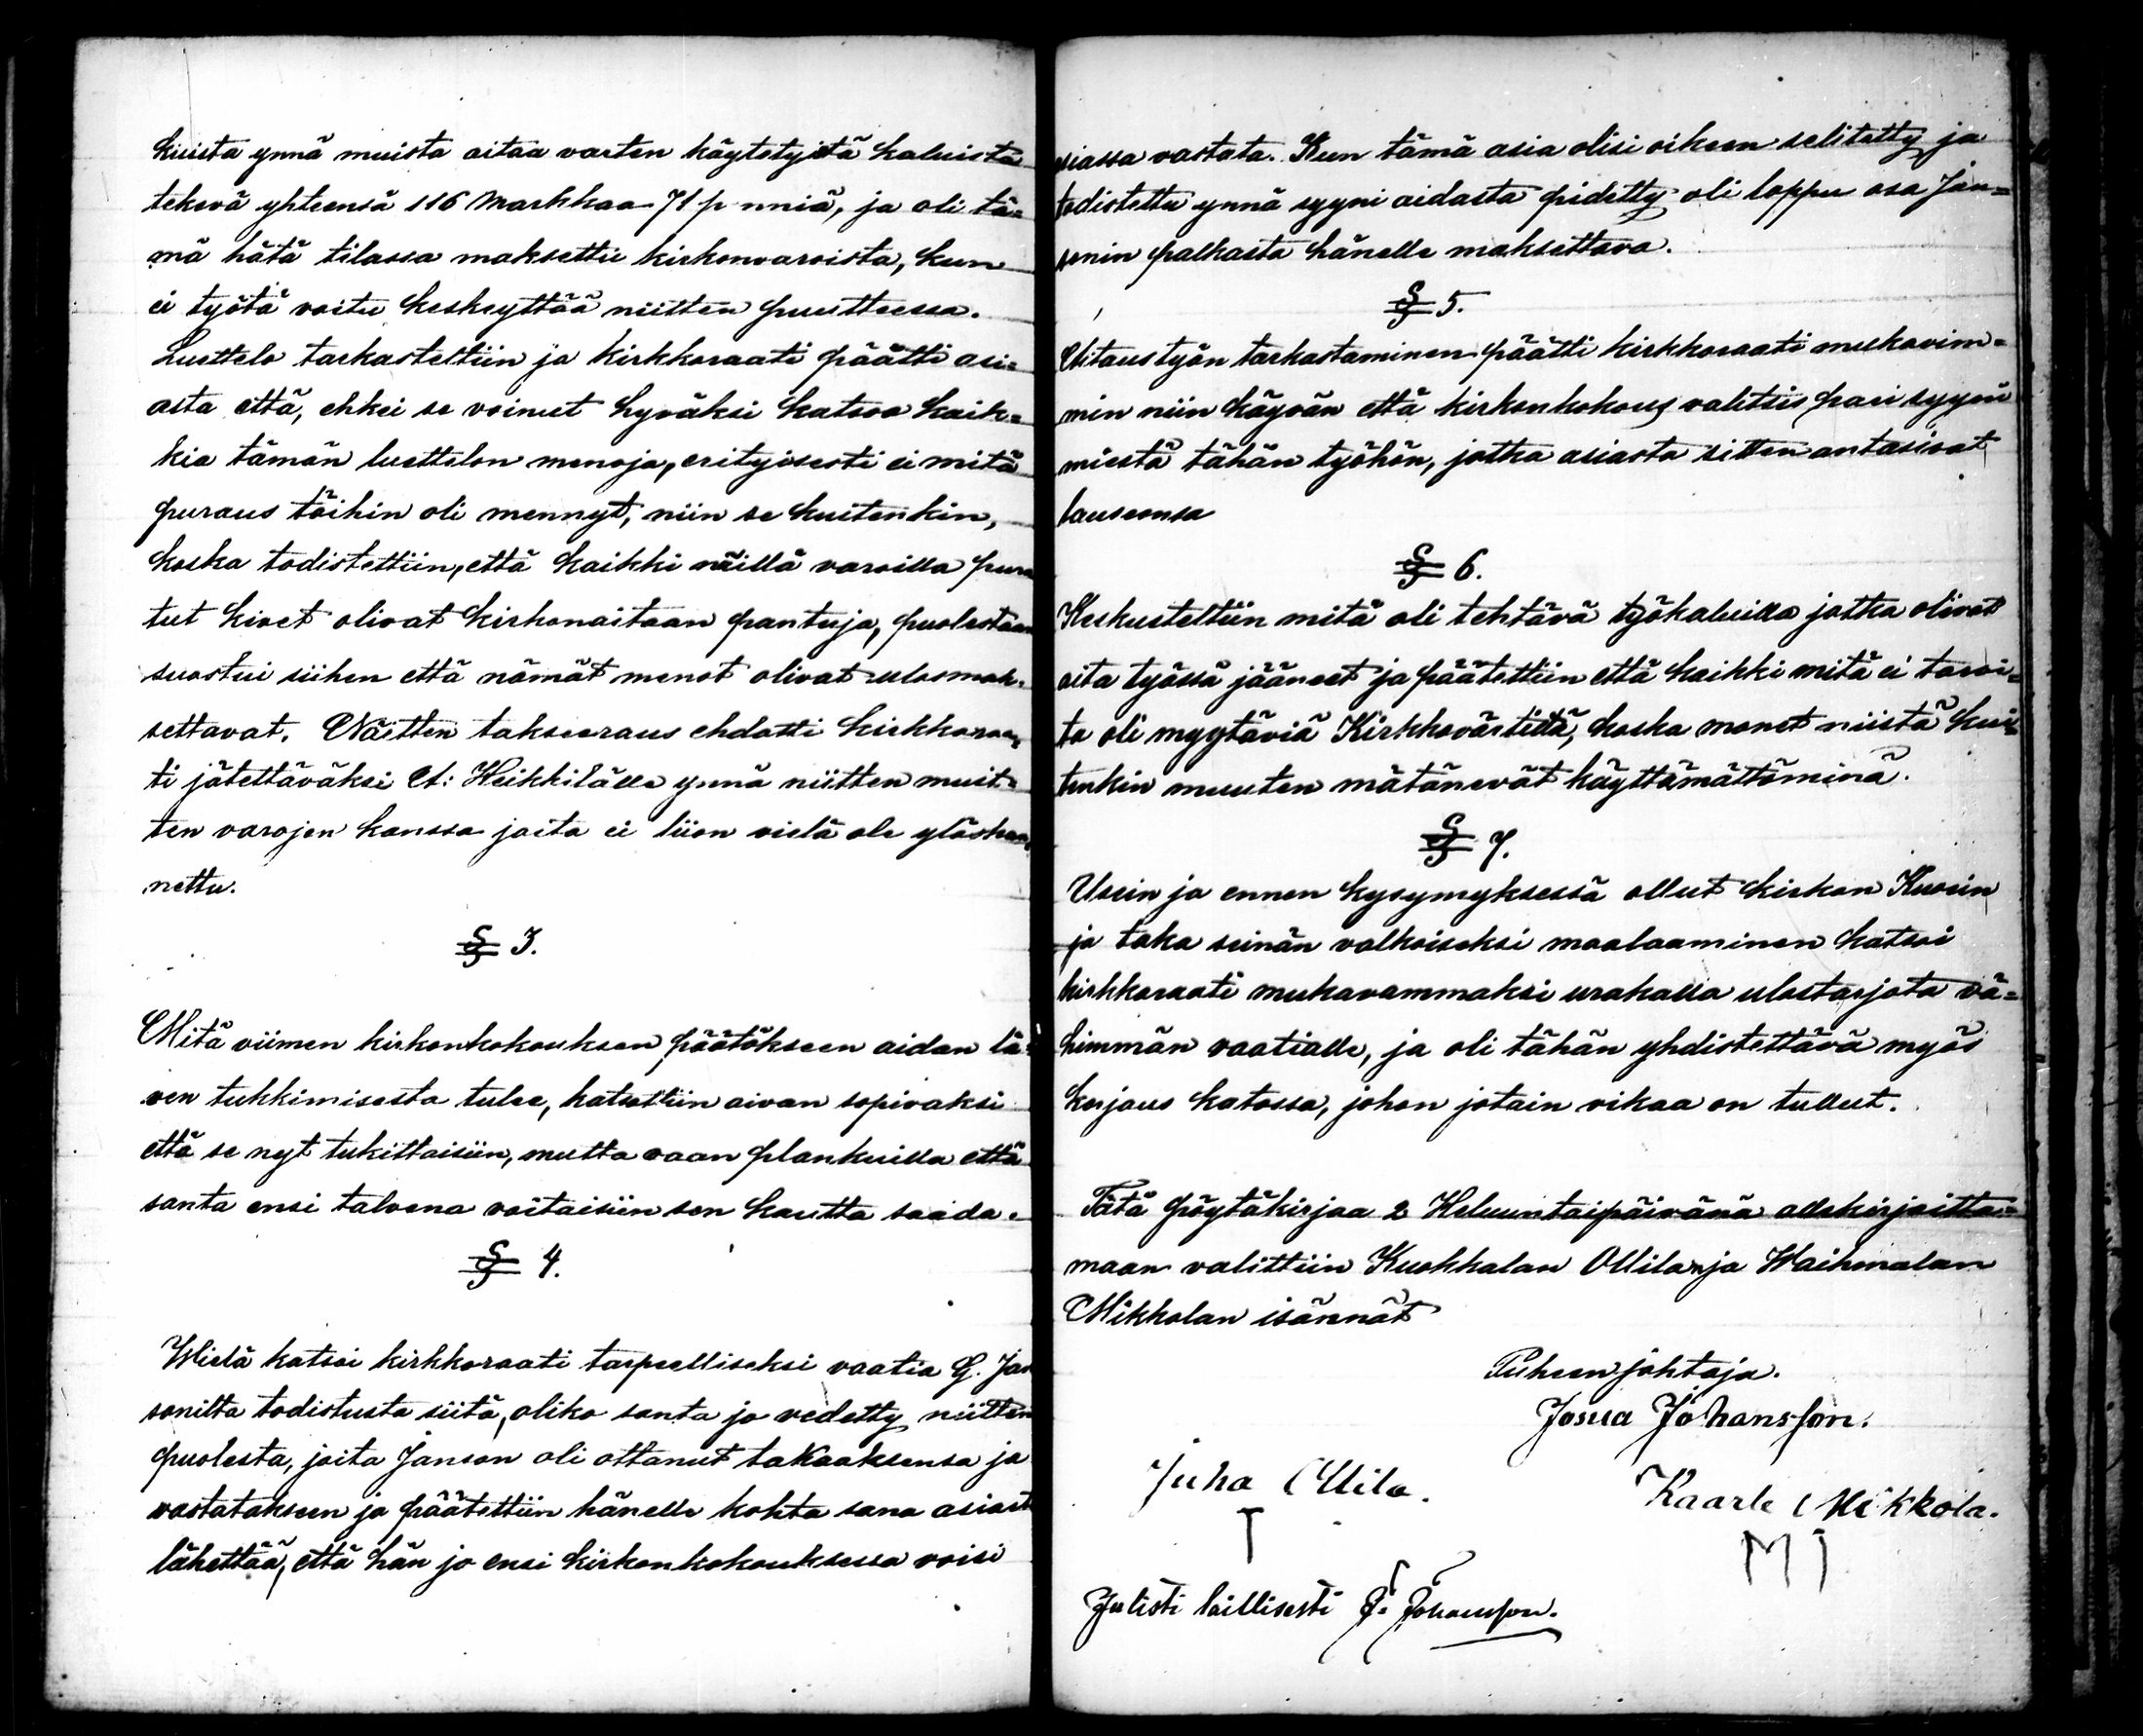 kuista ynnä muista aitaa varten käytetyistä kaluista
tekevä yhteensä 116 Markkaa 71 p nniä, ja oli tä=
mä hätä tilassa maksettu kirkonvaroista, kun
ei työtä voitu keskeyttää niitten puutteessa.
Luettelo tarkasteltiin ja kirkkoraati päätti asi=
asta että, ehkei se voinut hyväksi katsoa kaik=
kia tämän luettelon menoja, erityisesti ei mitä
puraus töihin oli mennyt, niin se kuitenkin,
koska todistettiin, että kaikki näillä varoilla pura
tut kivet olivat kirkonaitaan pantuja, puolestaan
suostui siihen että nämät menot olivat ulosmak=
settavat. Näitten takseeraus ehdotti kirkkoraa=
ti jätettäväksi A: Heikkilälle ynnä niitten muit=
ten varojen kanssa joita ei liion vielä ole ylöskan
nettu.
§ 3.
Mitä viimen kirkonkokouksen päätökseen aidan lä=
ven tukkimisesta tulee, katsottiin aivan sopivaksi
että se nyt tukittaisiin, mutta vaan plankuilla että
santa ensi talvena voitaisiin sen kautta saada.
§ 4.
Wielä katsoi kirkkoraati tarpeelliseksi vaatia G. Jan
sonilta todistusta siitä, oliko santa jo vedetty niitten
puolesta, joita Janson oli ottanut takaaksensa ja
vastatakseen ja päätettiin hänelle kohta sana asiast
lähettää, että hän jo ensi kirkonkokouksessa voisi
asiassa vastata. Kun tämä asia olisi oikeen selitetty ja
todistettu ynnä syyni aidasta pidetty oli loppu osa Jan=
sonin palkasta hänelle maksettava.
§ 5.
Aitaus työn tarkastaminen päätti kirkkoraati mukavim=
min niin käyvän että kirkonkokous valitsis pari syyni
miestä tähän työhön, jotka asiasta sitten antasivat
lauseensa
§ 6.
Keskusteltiin mitä oli tehtävä työkaluilla jotka olivat
aita työssä jääneet ja päätettiin että kaikki mitä ei tarvi=
ta oli myytäviä Kirkkovärtillä, koska monet niistä kui=
tenkin muuten mätänevät käyttämättöminä.
§ 7.
Usein jo ennen kysymyksessä ollut kirkon Kuorin
ja taka seinän valkoiseksi maalaaminen katsoi
kirkkoraati mukavammaksi urakalla ulostarjota vä=
himmän vaatialle, ja oli tähän yhdistettävä myös
korjaus katossa, johon jotain vikaa on tullut.
Tätä pöytäkirjaa 2 Heluuntaipäivänä allekirjoitta=
maan valittiin Kuokkalan Ollilan ja Waihmalan
Mikkolan isännät
Puheenjohtaja.
Josua Johansson.
Juha Ollila.
Kaarle Mikkola.
T
M I
Julisti laillisesti J. Johansson.